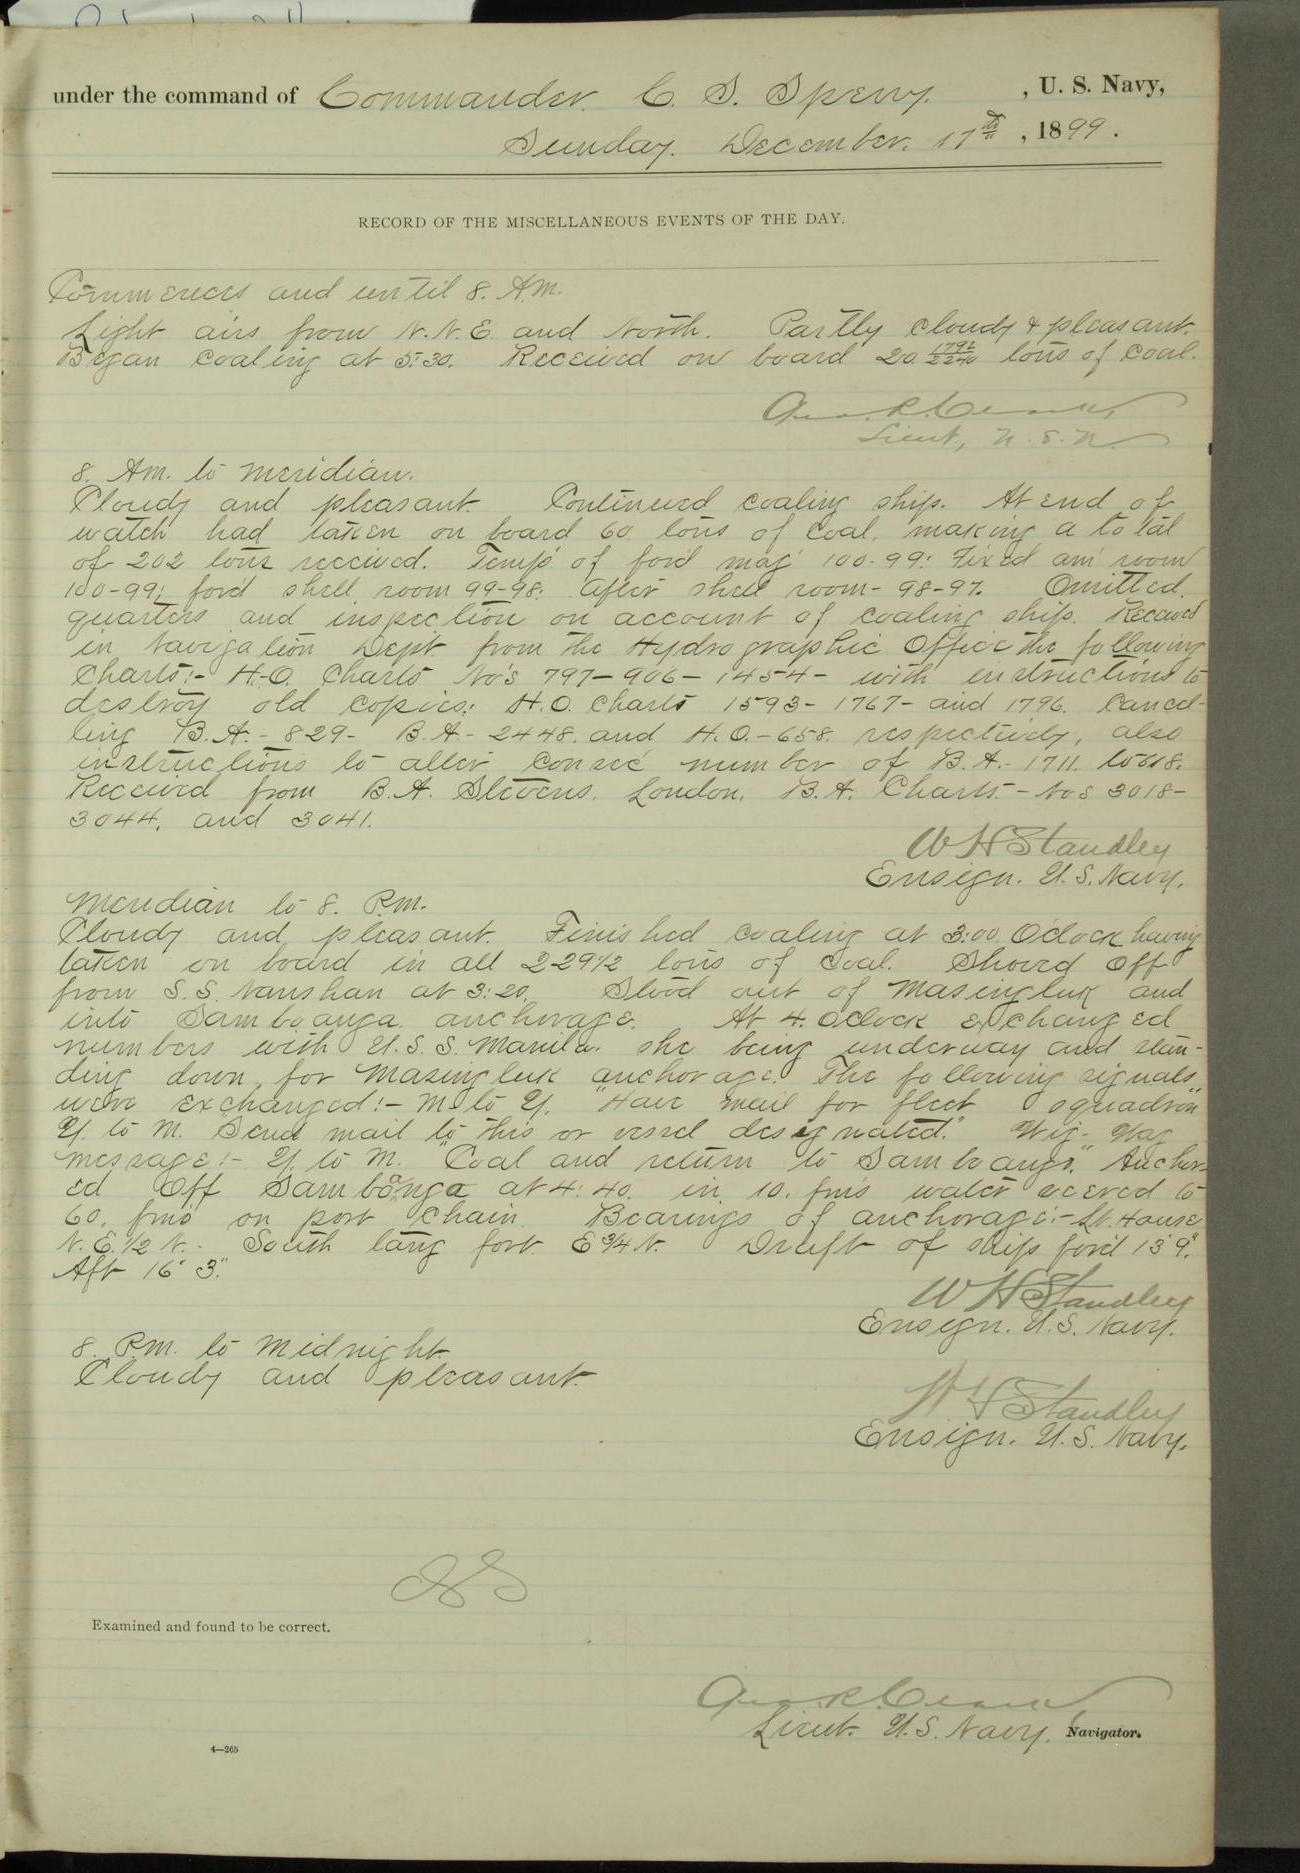 under the command of Commander C. S. Sperry. , U. S. Navy,
Sunday. December. 17th , 1899.
RECORD OF THE MISCELLANEOUS EVENTS OF THE DAY.
Commences and until 8. A.M.
Light airs from N.N.E. and North. Partly cloudy & pleasant.
Began coaling at 5:30. Received on board 20 1792/2240 tons of coal.
Geo. R.
Lieut, U.S.N.
8. Am. to meridian.
Cloudy and pleasant. Continued coaling ship. At end of
watch had taken on board 60 tons of coal, making a total
of 202 tons received. Temp's of for'd mag' 100-99: Fixed am' room
100-99; for'd shell room 99-98: After shell room- 98-97. Omitted
quarters and inspection on account of coaling ship. Received
in Navigation Dept from the Hydrographic Office the following
Charts:- H.O. Charts No's 797-906-1454- with instructions to
destroy old copies: H.O. Charts 1593- 1767- and 1796. Cancel-
ling B.A.- 829- B.A.- 2448. and H.O.-658. respectively, also
instructions to alter consec' number of B.A.- 1711. to 618.
Received from B.A. Stevens. London. B.A. Charts.- Nos 3018-
3044. and 3041.
W H Standley
Ensign. U.S. Navy.
Meridian to 8. P.m.
Cloudy and pleasant. Finished coaling at 3:00. O'clock having
taken on board in all 229 1/2 tons of coal. Shoved off
from S.S. Nanshan at 3:20. Stood out of Masingluk and
into Samboanga anchorage. At 4. O'clock exchanged
numbers with U.S.S. Manila. she being underway and stan-
ding down, for Masingluk anchorage. The following signals
were exchanged:- M. to Y. "Have mail for fleet squadron"
Y. to M. "Send mail to this or vessel designated." Wig-Wag
message:- Y. to M. "Coal and return to Samboanga." Anchor-
ed off Samboanga at 4:40. in 10. fm's water veered to
60. fm's on port chain. Bearings of anchorage:- Lt. House
N.E. 1/2 N.- South tang fort E 3/4 N. Draft of ship for'd 13' 9".
Aft 16' 3".
W H Standley
Ensign. U.S. Navy.
8. P.m. to Midnight.
Cloudy and pleasant.
W H Standley
Ensign. U.S. Navy.
Examined and found to be correct.
Geo. R.
Lieut. U.S. Navy, Navigator.
4—265